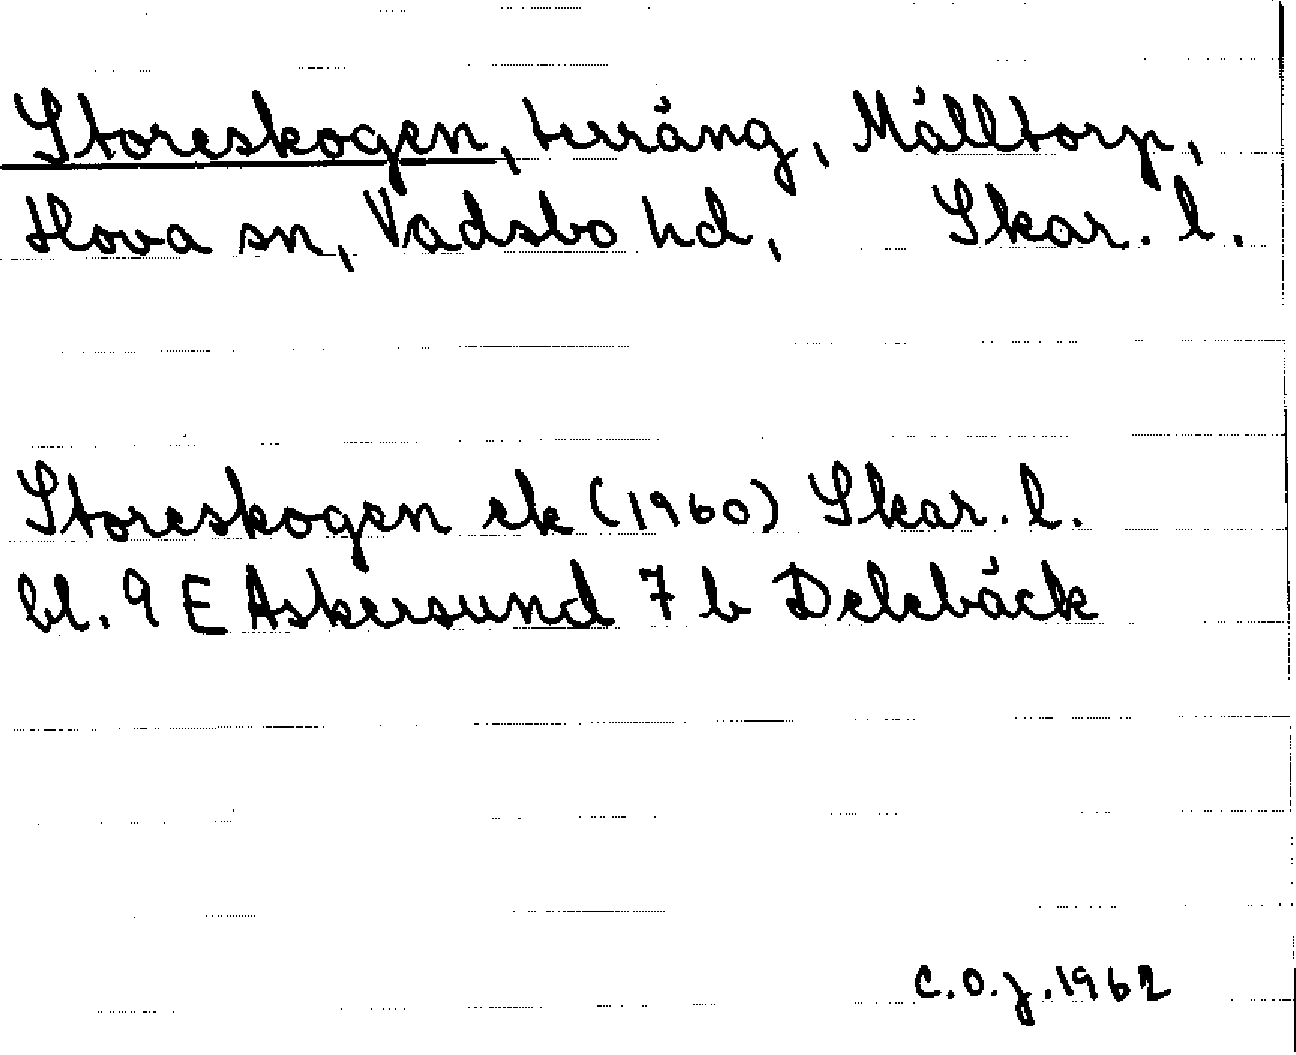 Storeskogen, terräng, Mälltorp,
Hova sn, Vadsbo hd, Skar. l.
Storeskogen ek (1960) Skar. l.
bl. 9 E Askersund 7 b Delebäck
C.O.J. 1962